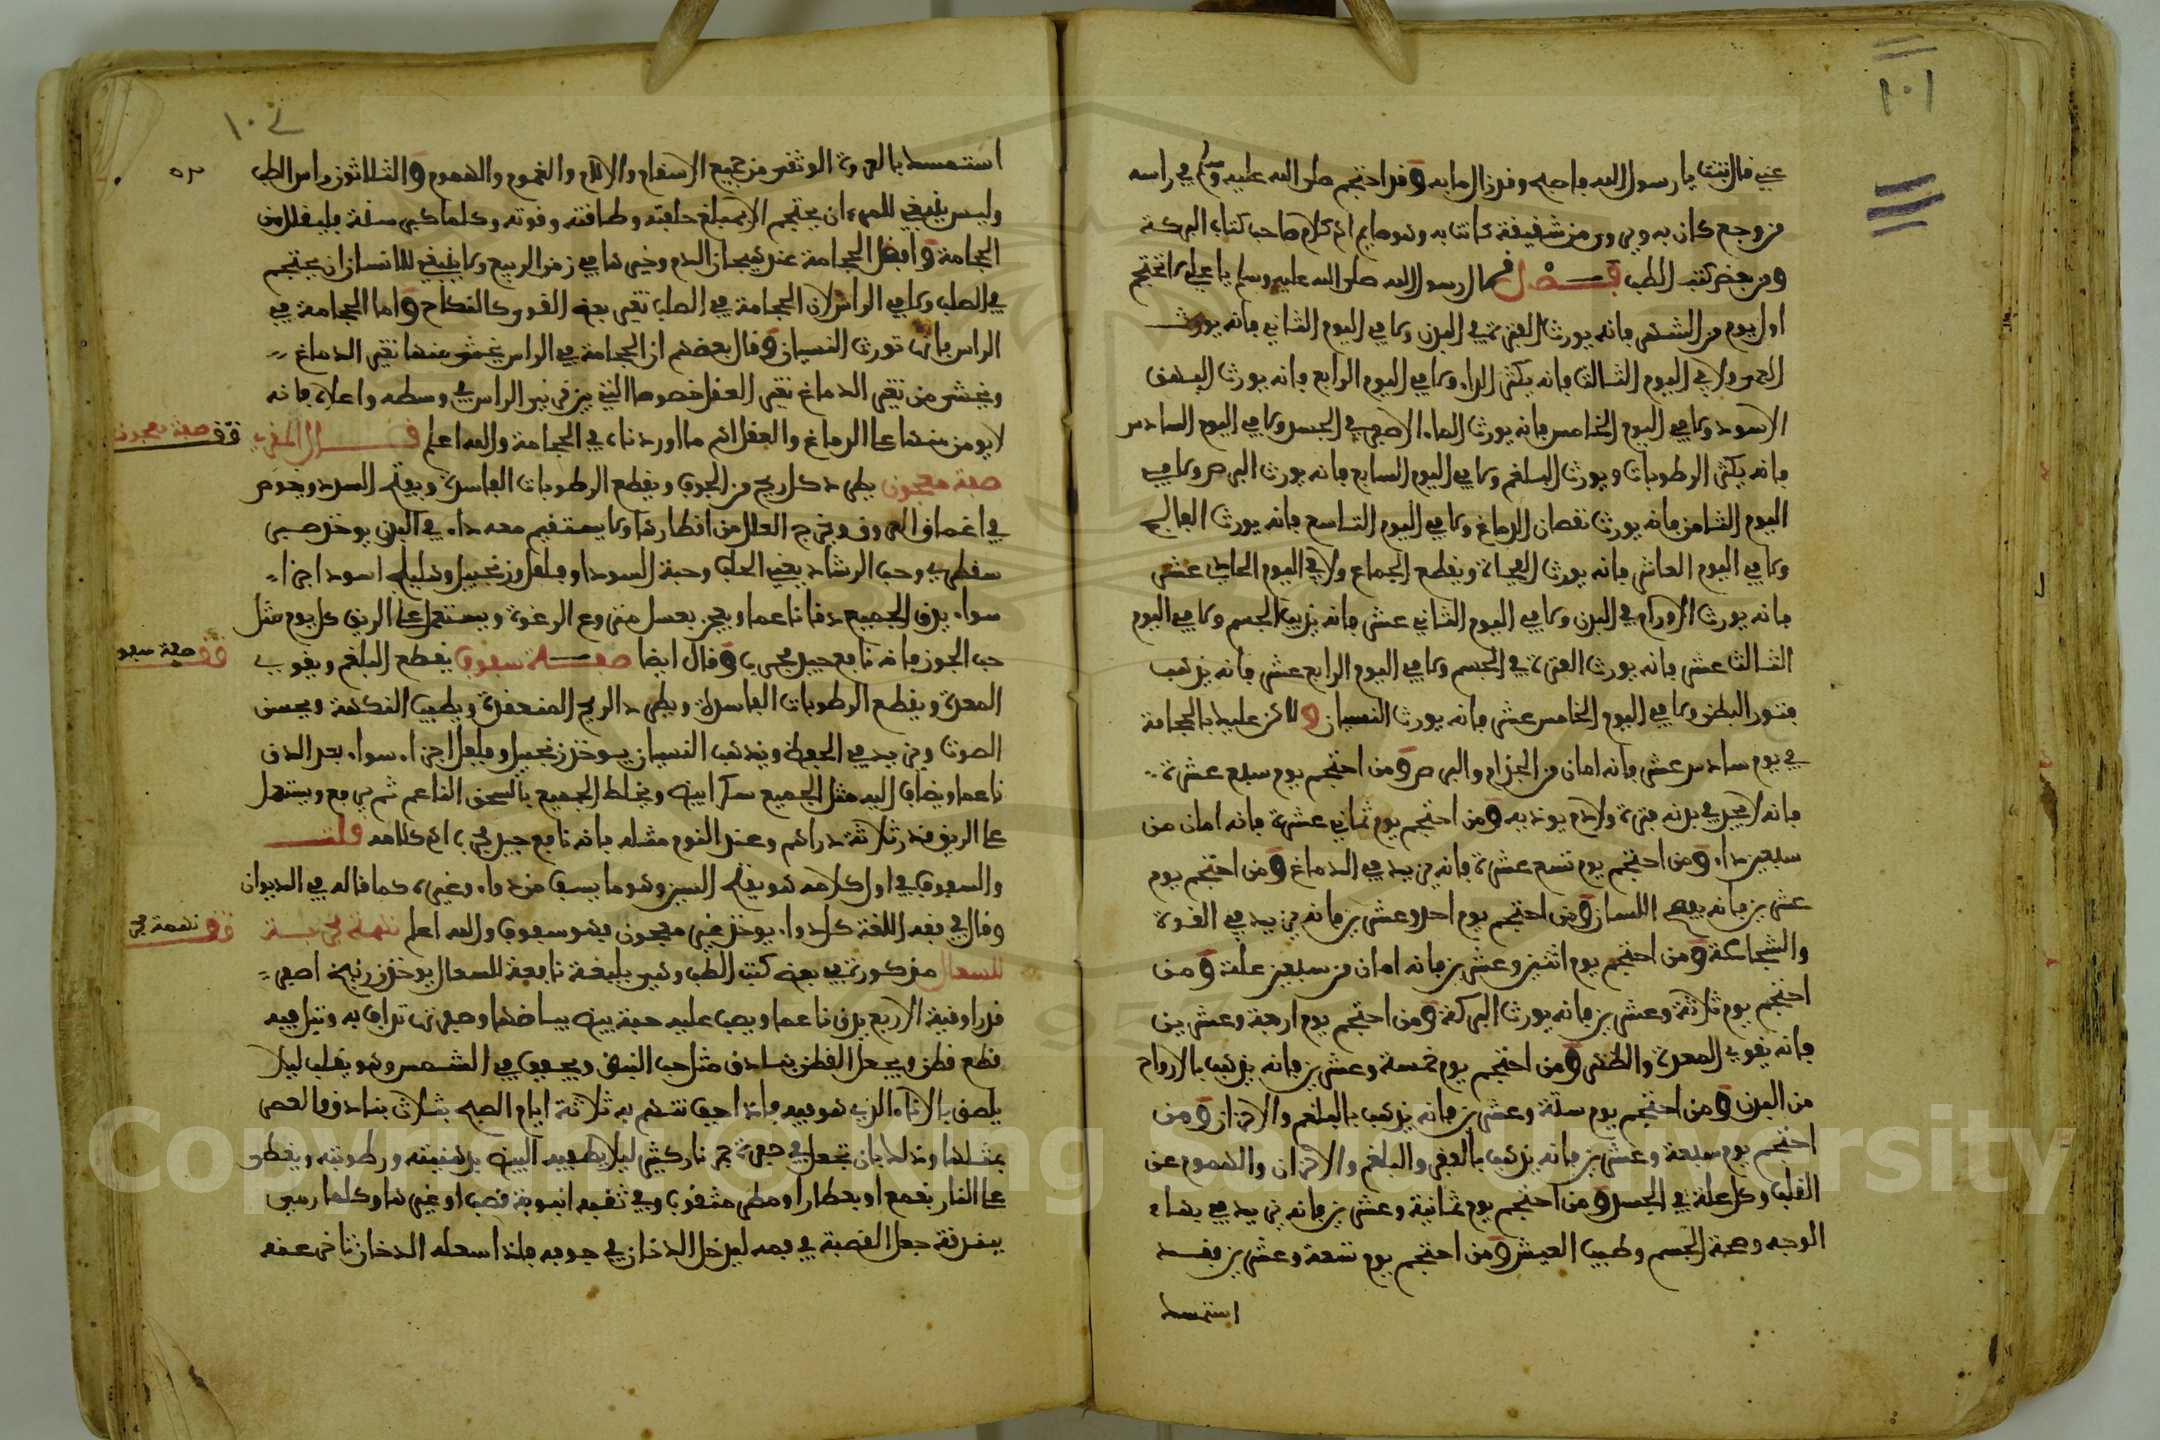 ١٠١
عني قال انت يا رسول الله فاصح وفد ازال ما به وقد احتجم صلى الله عليه وسلم في راسه
من وجع كان به وفي من شقيقة كانت به وهو صايم اه كلام صاحب كتاب البركة
ومن بعض كتب الطب فصل قال رسول الله صلى الله عليه وسلم يا علي لا تحتجم
اول يوم من الشهر فانه يورث الفترة في البدن ولا في اليوم الثاني فانه يورث
الحمى ولا في اليوم الثالث فانه يكثر الداء ولا في اليوم الرابع فانه يورث البهق
الاسود ولا في اليوم الخامس فانه يورث الماء الاصفر في الجسد ولا في اليوم السادس
فانه يكثر الرطوبات ويورث البلغم ولا في اليوم السابع فانه يورث البرص ولا في
اليوم الثامن فانه يورث نقصان الدماغ ولا في اليوم التاسع فانه يورث الفالج
ولا في اليوم العاشر فانه يورث الفجاة ويقطع الجماع ولا في اليوم الحادي عشر
فانه يورث الاورام في البدن ولا في اليوم الثاني عشر فانه يذيب الجسم ولا في اليوم
الثالث عشر فانه يورث الفترة في الجسم ولا في اليوم الرابع عشر فانه يذهب
بنور البطن ولا في اليوم الخامس عشر فانه يورث النسيان ولاكن عليك بالحجامة
في يوم سادس عشر فانه امان من الجذام والبرص ومن احتجم يوم سبع عشرة
فانه لا يجد في بدنه فترة ولا دم يوذيه ومن احتجم يوم ثماني عشرة فانه امان من
سبعين داء ومن احتجم يوم تسع عشرة فانه يزيد في الدماغ ومن احتجم يوم
عشرين فانه يفصح اللسان ومن احتجم يوم احد وعشرين فانه يزيد في القوة
والشجاعة ومن احتجم يوم اثنين وعشرين فانه امان من سبعين علة ومن
احتجم يوم ثلاثة وعشرين فانه يورث البركة ومن احتجم يوم اربعة وعشرين
فانه يقوي المعدة والظهر ومن احتجم يوم خمسة وعشرين فانه يذهب بالارواح
من البدن ومن احتجم يوم ستة وعشرين فانه يذهب بالبلغم والاحزان ومن
احتجم يوم سبعة وعشرين فانه يذهب بالصفر والبلغم والاحزان والهموم عن
القلب وكل علة في الجسد ومن احتجم يوم ثمانية وعشرين فانه يزيد في بهاء
الوجه وصحة الجسم وطيب العيش ومن احتجم يوم تسعة وعشرين فقد
استمسك
١٠٢
استمسك بالعروة الوثقى من جميع الاسقام والالام والغموم والهموم والثلاثون راس الطب
وليس ينبغي للمرء ان يحتجم الا بمبلغ خلقته وطاقته وقوته وكلما كبر سنه فليقلل من
الحجامة وافضل الحجامة عند هيجان الدم وخيرها في زمن الربيع ولا ينبغي للانسان ان يحتجم
في الصلب ولا في الراس لان الحجامة في الصلب تغير بعض القوى كالنكاح واما الحجامة في
الراس فانها تورث النسيان وقال بعضهم ان الحجامة في الراس يخشى منها تغير الدماغ
ويخشى من تغير الدماغ تغير العقل خصوصا التي بين قرني الراس في وسطه واعلاه فانه
لا يومن منها على الدماغ والعقل اهم ما اوردناه في الحجامة والله اعلم قال المغربي
قف صفة معجون
صفة معجون يطرد كل ريح من الجوف ويقطع الرطوبات الفاسدة ويفتح السدد ويغوص
في اعماق العروق ويخرج العلل من اقطارها ولا يستقيم معه داء في البدن يوخذ صبر
سقطري وحب الرشاد يعني الحلف وحبة السودا وفلفل وزنجبيل وهليلج اسود اجزاء
سواء يدق الجميع دقا ناعما ويعجن بعسل منزوع الرغوة ويستعمل على الريق كل يوم مثل
حب الجوز فانه نافع جيد مجرب وقال ايضا صفة سفوف يقطع البلغم ويقوي
قف صفة سفوف
المعدة ويقطع الرطوبات الفاسدة ويطرد الريح المنعقدة ويطيب النكهة ويحسن
الصوت ويزيد في الحفظ ويذهب النسيان يوخذ زنجبيل وفلفل اجزاء سواء بعد الدق
ناعما ويضاف اليه مثل الجميع سكرا ابيض ويخلط الجميع بالسحق الناعم ثم يرفع ويستعمل
على الريق قدر ثلاثة دراهم وعند النوم مثله فانه نافع جيد مجرب اه كلامه قلت
والسفوف في اول كلامه هو بفتح السين وهو ما يسف من دواء وغيره كما قاله في الديوان
وقال في فقه اللغة كل دواء يوخذ غير معجون فهو سفوف والله اعلم نسخة مجربة
قف نسخة مجربة
للسعال مذكورة في بعض كتب الطب وهي بليغة نافعة للسعال يوخذ زرنيخ اصفر
قدر اوقية الاربع يدق ناعما ويصب عليه حبة بيض بياضها وصفرتها تذاف به وتبل فيه
قطع قطن ويجعل القطن بنادق مثل حب النبق ويجفف في الشمس وهو يقلب ليلا
يلصق بالاناء الذي هو فيه فاذا جف تتم به ثلاثة ايام الصبح بثلاث بنادق والعصر
بمثلها وذلك بان تجعل في جمرة نار كثيرة ليلا يطفيه البيض بدهنيته ورطوبته ويغطى
على النار بقمع او بغطار او مطهر مثقوب وفي ثقبه انبوبة قصب او غيرها وكلما رمى
بندقة جعل القصبة في فمه ليدخل الدخان في جوفه فاذا اسعله الدخان تاخر عنه